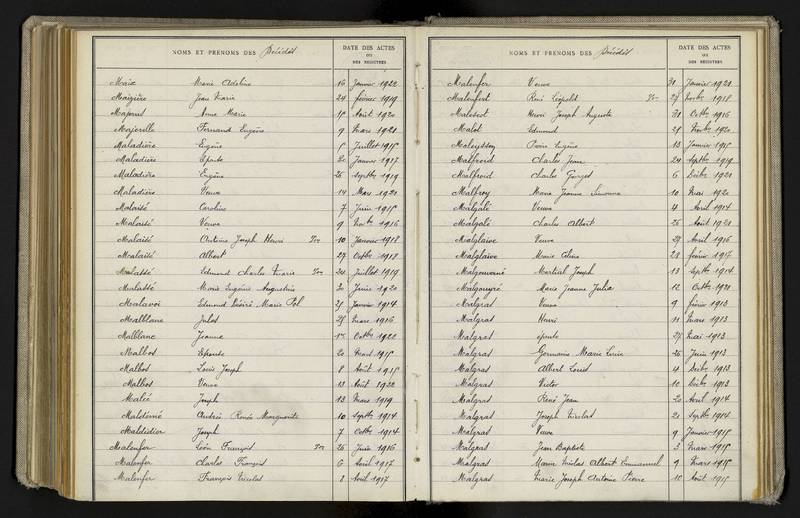 NOMS ET PRÉNOMS DES Décédés DATE DES ACTES OU DES REGISTRES
Maix Marie Adeline 16 Janvier 1922
Maizière Jean Marie 24 février 1919
Majerus Anne Marie 15 Août 1920
Majerelle Fernand Eugène 9 Mars 1921
Maladière Eugène 5 Juillet 1915
Maladière Epouse 20 Janvier 1917
Maladière Eugène 25 Septbre 1919
Maladière Veuve 14 Mars 1920
Malaisé Caroline 7 Juin 1915
Malaisé Veuve 9 Novbre 1916
Malaisé Antoine Joseph Henri 10 Janvier 1918
Malaisé Albert 27 Octbre 1918
Malassé Edmond Charles Marie 24 Juillet 1919
Malassé Marie Eugénie Augustine 30 Juin 1920
Malavoi Edmond Désiré Marie Pol 25 Janvier 1914
Malblanc Jules 25 Mars 1916
Malblanc Jeanne Octbre 1920
Malbos Epouse 20 1915
Malbos Louis Joseph 8 Août 1915
Malbos Veuve 13 Août 1922
Malié Joseph 13 Mars 1919
Maldémé Andrée Renée Marguerite 10 Septbre 1914
Maldidier Joseph 7 Octbre 1914
Malenfer Léon François 26 Juin 1916
Malenfer Charles François 6 Avril 1917
Malenfer François Nicolas 8 Avril 1917
NOMS ET PRÉNOMS DES Décédés DATE DES ACTES OU DES REGISTRES
Malenfer Veuve 31 Janvier 1921
Malenfert René Léopold 27 Novbre 1918
Malesset Henri Joseph Auguste 31 Octbre 1916
Malot Edmond 25 Novbre 1920
Maleysson Pierre Eugène 13 Janvier 1915
Malfroid Charles Jean 24 Septbre 1919
Malfroid Charles Georges 6 Décbre 1921
Malfroy Marie Jeanne Simonne 10 Mai 1920
Malgalé Veuve 4 Avril 1914
Malgalé Charles Albert 25 Août 1921
Malglaive Veuve 29 Avril 1916
Malglaive Marie 28 février 1917
Malgouverné Martial Joseph 13 Septbre 1914
Malgouyré Marie Jeanne Julia 12 Octbre 1921
Malgras Veuve 9 février 1913
Malgras Henri 11 Mars 1913
Malgras épouse 27 Mai 1913
Malgras Germaine Marie Lucie 26 Juin 1913
Malgras Albert Louis 4 Décbre 1913
Malgras Victor 10 Décbre 1913
Malgras René Jean 20 Avril 1914
Malgras Joseph Nicolas 21 Septbre 1914
Malgras Veuve 9 Janvier 1915
Malgras Jean Baptiste 3 Mars 1915
Malgras Marie Nicolas Albert Emmanuel 9 Mars 1915
Malgras Marie Joseph Antoine Pierre 10 Août 1915